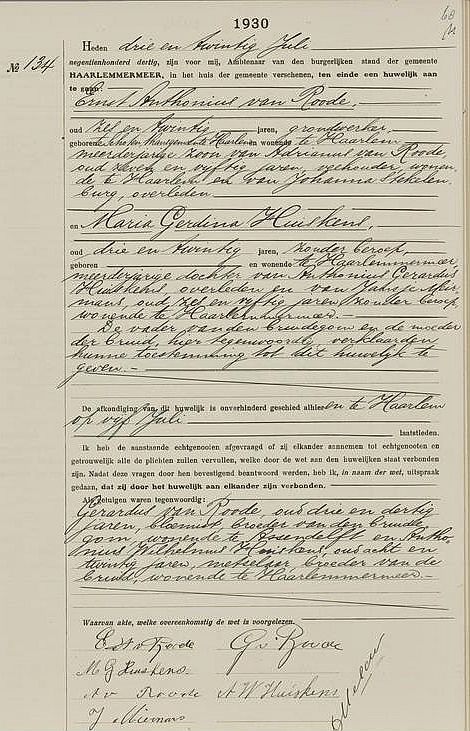 1930
60
Nº 134
Heden drie en twintig Juli
negentienhonderd dertig, zijn voor mij, Ambtenaar van den burgerlijken stand der gemeente
HAARLEMMERMEER, in het huis der gemeente verschenen, ten einde een huwelijk aan
te gaan:
Ernst Anthonius van Roode,
oud zes en twintig jaren, grondwerker,
geboren te Schoten thans gemeente Haarlem en wonende te Haarlem
meerderjarige zoon van Adrianus van Roode,
oud zeven en vijftig jaren, veehouder, wonen-
de te Haarlem en van Johanna Stekelen-
burg, overleden
en Maria Gerdina Huiskens,
oud drie en twintig jaren, zonder beroep,
geboren en wonende te Haarlemmermeer,
meerderjarige dochter van Anthonius Gerardus
Huiskens, overleden en van Jansje Mier-
mans, oud zes en vijftig jaren, zonder beroep,
wonende te Haarlemmermeer.
De vader van den bruidegom en de moeder
der bruid, hier tegenwoordig, verklaarden
hunne toestemming tot dit huwelijk te
geven.
De afkondiging van dit huwelijk is onverhinderd geschied alhier en te Haarlem
op vijf Juli
laatstleden.
Ik heb de aanstaande echtgenooten afgevraagd of zij elkander aannemen tot echtgenooten en
getrouwelijk alle de plichten zullen vervullen, welke door de wet aan den huwelijken staat verbonden
zijn. Nadat deze vragen door hen bevestigend beantwoord werden, heb ik, in naam der wet, uitspraak
gedaan, dat zij door het huwelijk aan elkander zijn verbonden.
Als getuigen waren tegenwoordig:
Gerardus van Roode, oud drie en dertig
jaren, bloemist, broeder van den bruide-
gom, wonende te Assendelft en Antho-
nius Wilhelmus Huiskens, oud acht en
twintig jaren, metselaar, broeder van de
bruid, wonende te Haarlemmermeer.
Waarvan akte, welke overeenkomstig de wet is voorgelezen.
E A v Roode G. v. Roode
M G Huiskens
A v Roode A W Huiskens
J Miermans